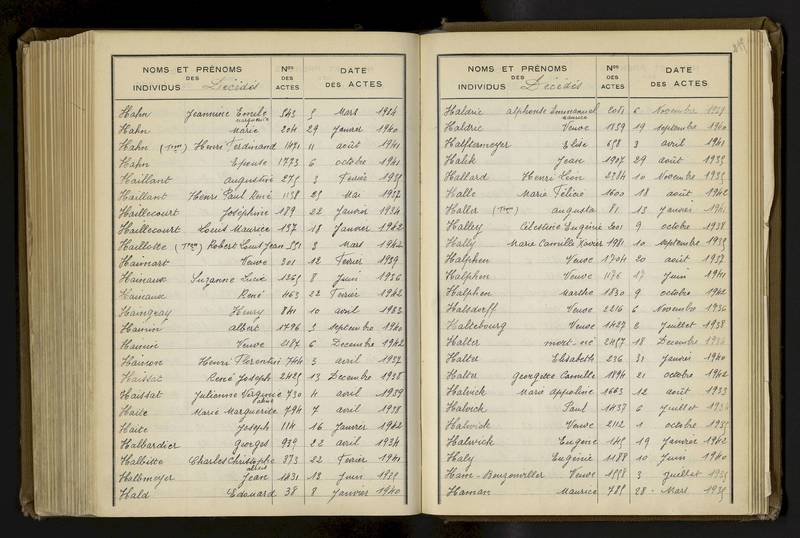 NOMS ET PRÉNOMS DES INDIVIDUS Décédés Nos DES ACTES DATE DES ACTES
Hahn Jeannine Emelie Marguerite 543 5 Mars 1934
Hahn Marie 204 29 Janvier 1940
Hahn (Tran) Henri Ferdinand 1471 11 août 1941
Hahn Epouse 1773 6 octobre 1941
Haillant augustine 275 3 Février 1935
Haillant Henri Paul René 1138 25 Mai 1937
Haillecourt Joséphine 189 22 Janvier 1934
Haillecourt Louis Maurice 137 18 Janvier 1942
Haillotte (Tran) Robert Louis Jean 551 3 Mars 1942
Haimart Veuve 301 12 Février 1939
Hainaux Suzanne Lucie 1265 8 Juin 1936
Hainaux René 463 22 Février 1942
Haingray Henry 841 10 avril 1933
Hainin albert 1796 3 septembre 1940
Veuve 2187 6 Decembre 1942
Hairon Henri Florentin 744 3 avril 1937
Haissat René Joseph 2425 13 Decembre 1938
Haissat Julianne Virginie 730 4 avril 1939
Haite Marie Marguerite 794 7 avril 1938
Haite Joseph 114 16 Janvier 1942
Halbardier Georges 939 22 avril 1934
Halbitte Charles Christophe 373 22 Février 1941
Halbmeyer alfred Jean 1431 13 Juin 1935
Hald Edouard 38 8 Janvier 1940
NOMS ET PRÉNOMS DES INDIVIDUS Décédés Nos DES ACTES DATE DES ACTES
Haldric alphonse Emmanuel Maurice 2051 6 Novembre 1939
Haldric Veuve 1839 19 septembre 1940
Halftermeyer Elise 658 3 avril 1941
Halik Jean 1907 29 août 1935
Hallard Henri Léon 2384 10 Novembre 1935
Halle Marie Félicie 1600 18 août 1942
Haller (Tran) augusta 81 13 Janvier 1941
Halley Célestine Eugénie 2001 9 octobre 1938
Hally Marie Camille Xavier 1981 10 septembre 1935
Halphen Veuve 1704 20 août 1937
Halphen Veuve 1176 17 Juin 1941
Halphen Marthe 1830 9 octobre 1942
Halsdorff Veuve 2216 6 Novembre 1936
Haltebourg Veuve 1427 2 Juillet 1938
Halter mort-né 2457 18 Decembre 1936
Halter Elisabeth 236 31 Janvier 1940
Halter Georgette Camille 1894 21 octobre 1942
Halwick Marie appoline 1663 12 août 1933
Halwick Paul 1437 6 Juillet
Halwick Veuve 2112 1 octobre 1935
Halwick Eugene 145 19 Janvier 1942
Haly Eugénie 1188 10 Juin 1940
Ham-Bouzonviller Veuve 1558 3 Juillet 1935
Haman Maurice 785 28 Mars 1935